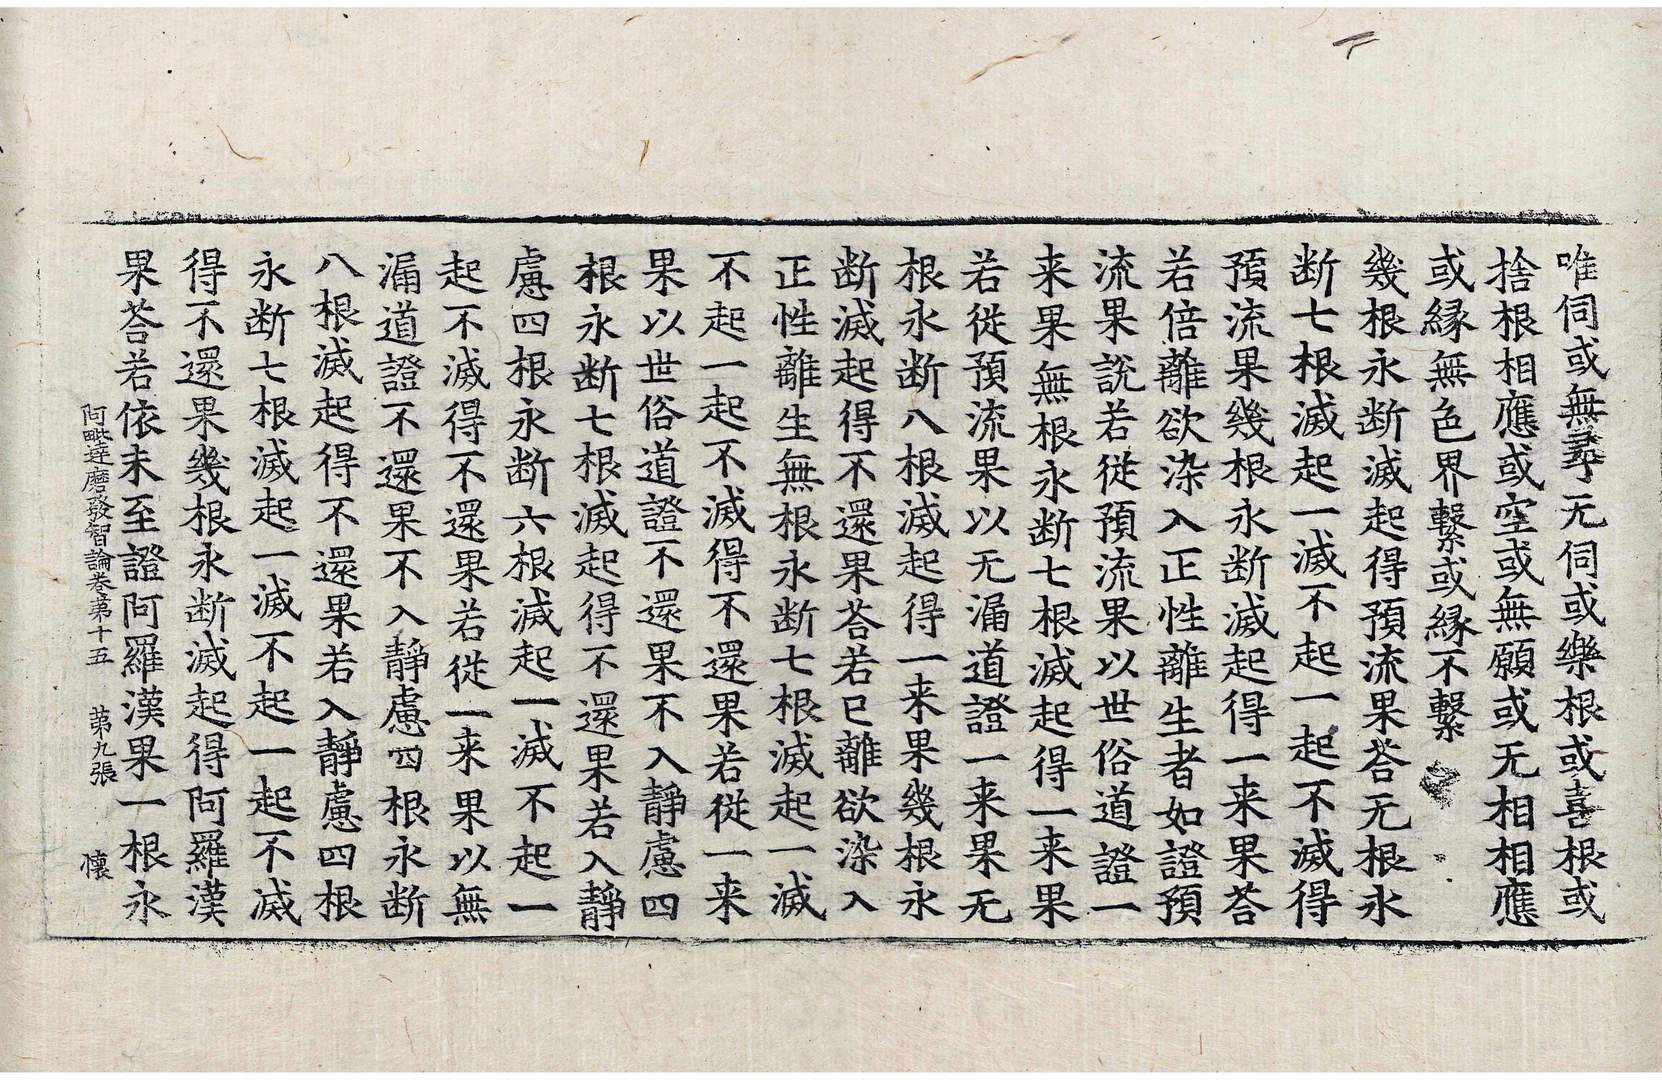 唯伺或無尋无伺或樂根或喜根或
捨根相應或空或無願或无相相應
或縁無色界繫或縁不繫
幾根永断滅起得預流果荅无根永
断七根滅起一滅不起一起不滅得
預流果幾根永断滅起得一来果荅
若倍離欲染入正性離生者如證預
流果說若從預流果以世俗道證一
来果無根永断七根滅起得一来果
若從預流果以无漏道證一来果无
根永断八根滅起得一来果幾根永
断滅起得不還果荅若已離欲染入
正性離生無根永断七根滅起一滅
不起一起不滅得不還果若從一来
果以世俗道證不還果不入靜慮四
根永断七根滅起得不還果若入靜
慮四根永断六根滅起一滅不起一
起不滅得不還果若從一来果以無
漏道證不還果不入靜慮四根永断
八根滅起得不還果若入靜慮四根
永断七根滅起一滅不起一起不滅
得不還果幾根永断滅起得阿羅漢
果荅若依未至證阿羅漢果一根永
阿毗達磨發智論卷苐十五　苐九張　懐